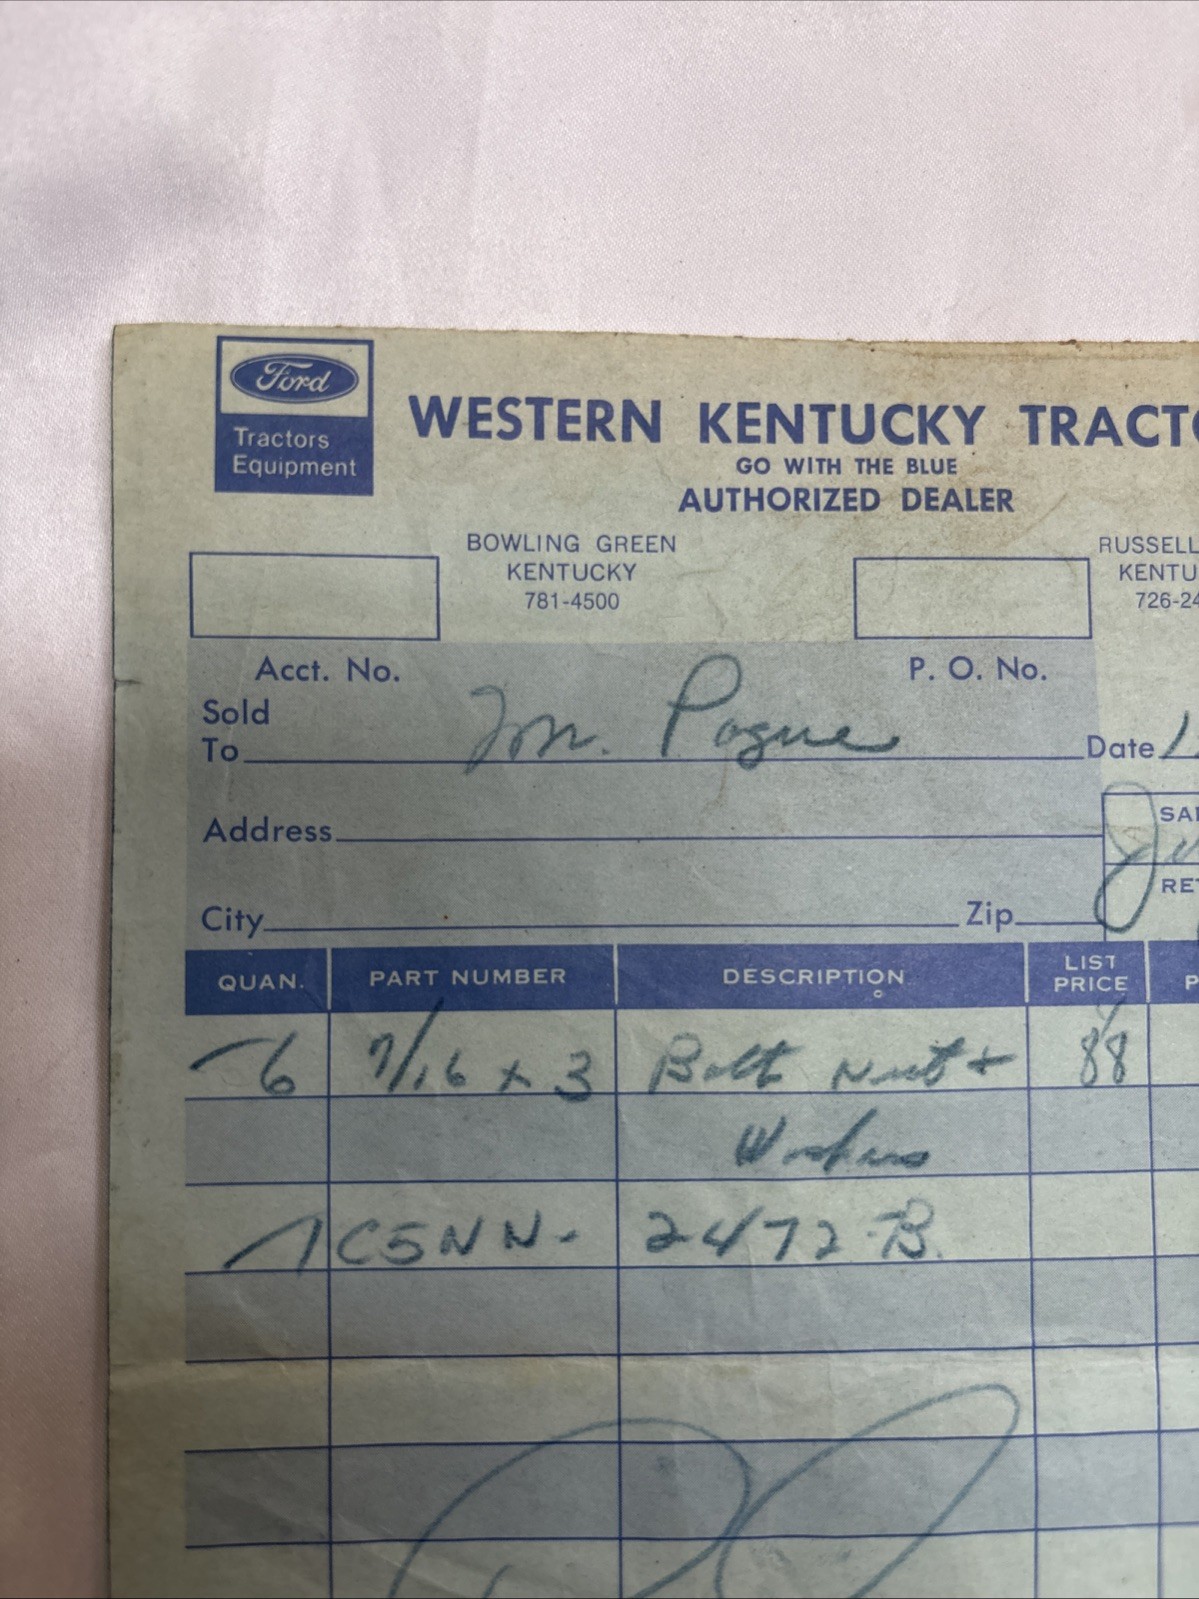 Ford
Tractors
Equipment
WESTERN KENTUCKY TRACTO
GO WITH THE BLUE
AUTHORIZED DEALER
BOWLING GREEN
KENTUCKY
781-4500
RUSSELL
KENTU
726-24
Acct. No.
P. O. No.
Sold
To M. Pogue
Date 1
Address
SAL
City
Zip
RE
QUAN. PART NUMBER DESCRIPTION LIST PRICE P
6 7/16 x 3 Bolt Nut + 88
Washers
1 C5NN- 2472-B.